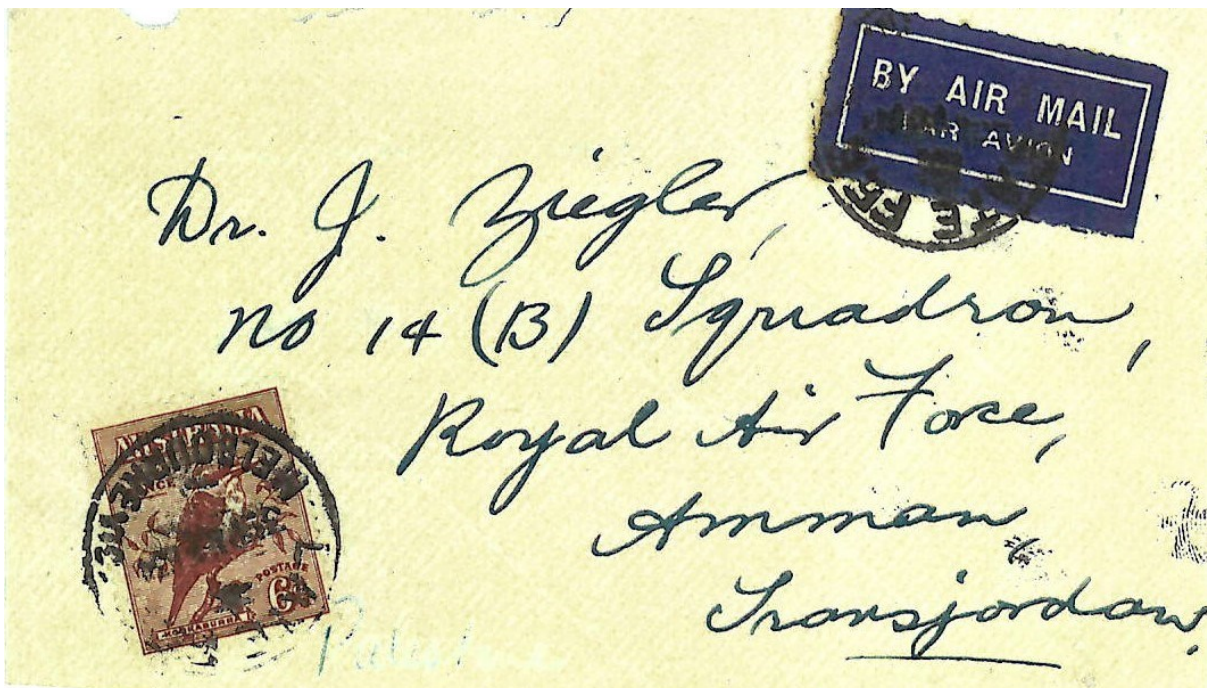 BY AIR MAIL
PAR AVION
Dr. J. Ziegler,
No 14 (B) Squadron,
Royal Air Force,
Amman,
Transjordan.
AUSTRALIA
MELBOURNE VIC
POSTAGE
6D
KOOKABURRA
Palestine